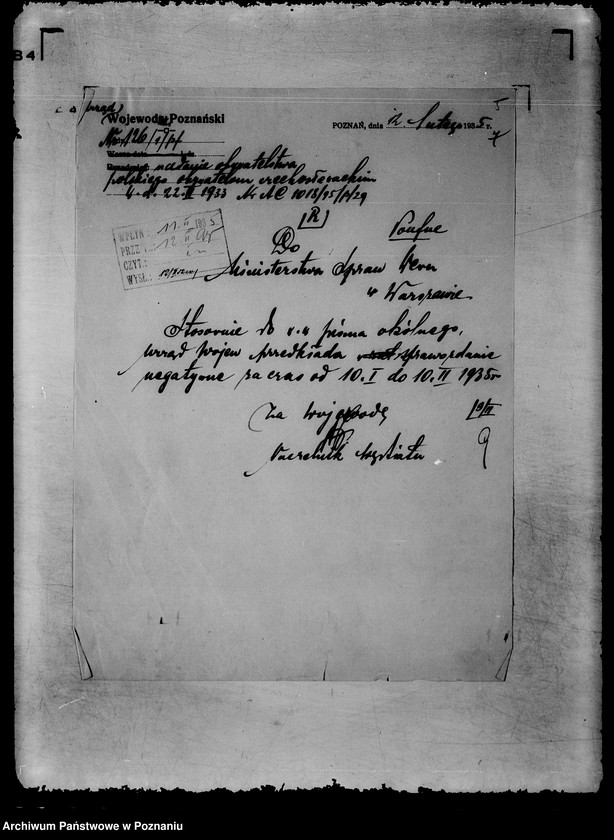 84
5
Urząd
Wojewoda Poznański
POZNAŃ, dnia 12. Lutego 1935 r.
No. 126/
nadanie obywatelstwa
polskiego obywatelom czechosłowackim
z d. 22. II 1933 Nr AC 1018/35/p/29
WPŁYN. 11. II 1935
PRZE 12 II
CZYT.:
WYSŁ.:
[R]
Poufne
Do
Ministerstwa Spraw Wewn
w Warszawie
Stosownie do w.w pisma okólnego,
urząd wojew przedkłada sprawozdanie
negatywne za czas od 10. I do 10. II 1935r
Za Wojewodę
Naczelnik Wydziału
Archiwum Państwowe w Poznaniu